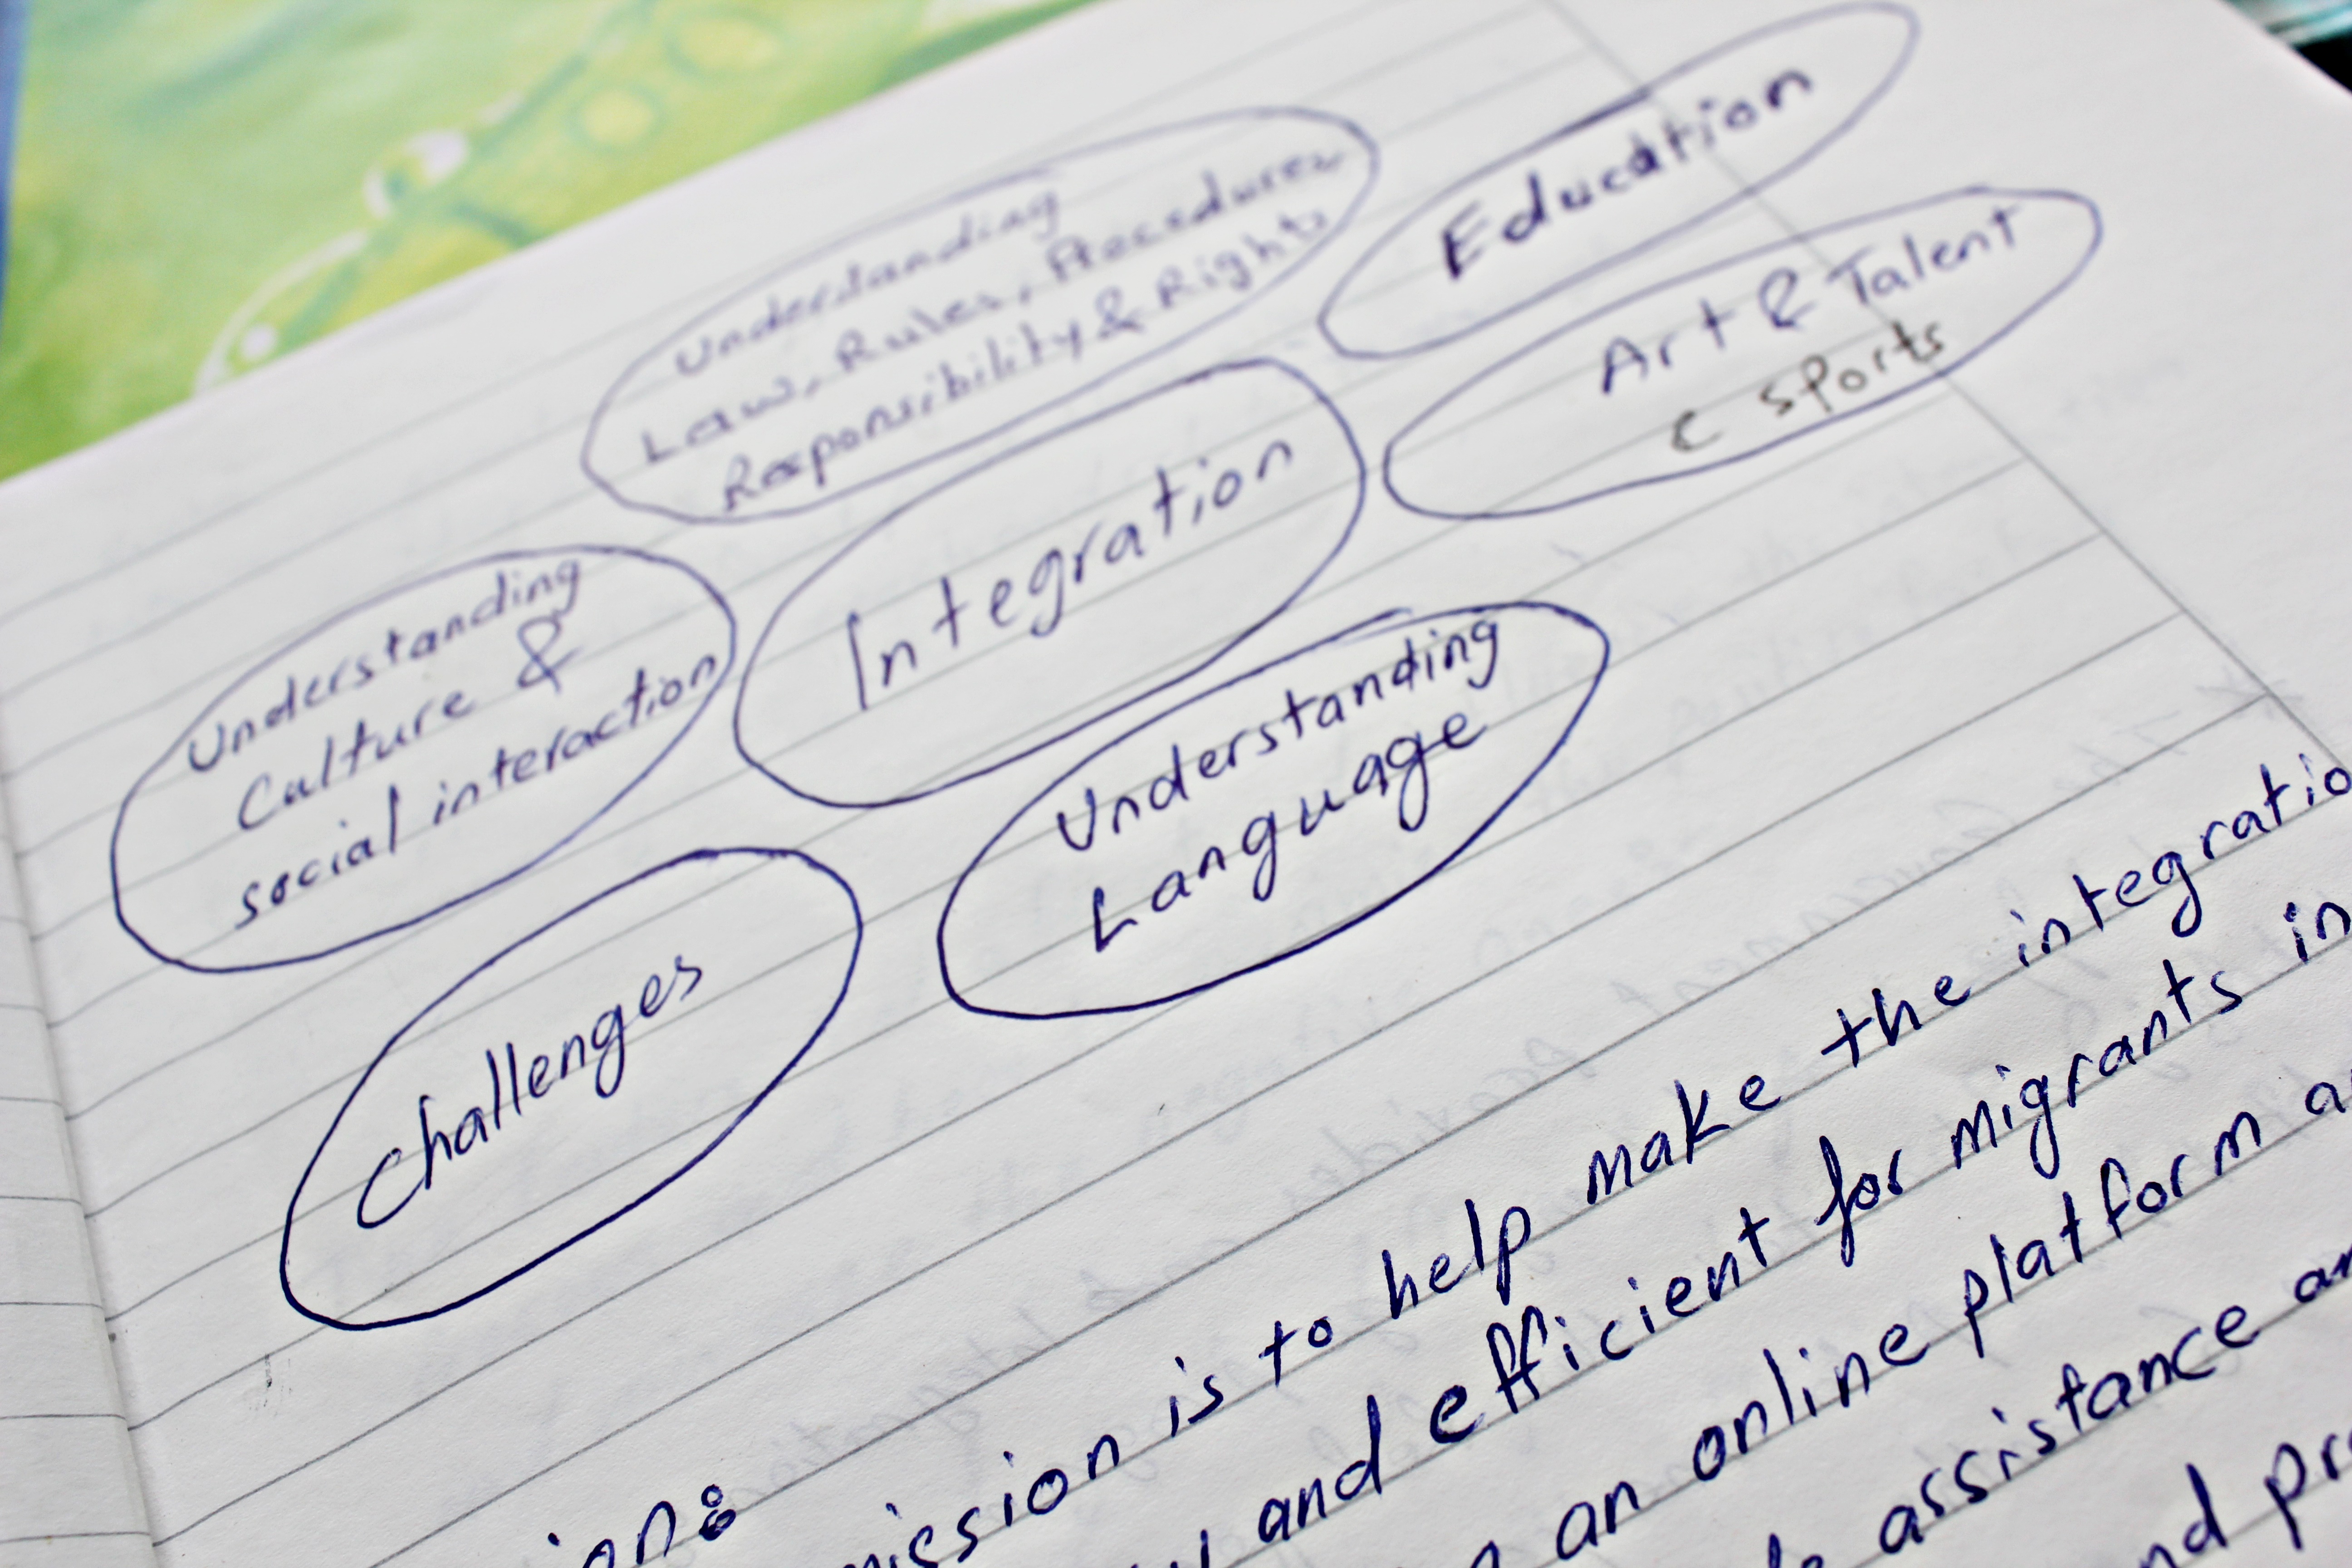 Education
Understanding
Law, Rules, Procedures
Responsibility & Rights
Art & Talent
c sports
Integration
Understanding
Culture &
social interaction
Understanding
Language
challenges
is to help make the
and efficient for migrants in
an online platform
assistance